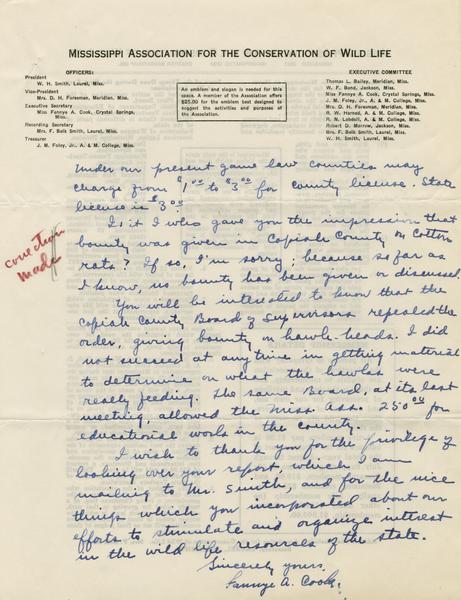 MISSISSIPPI ASSOCIATION FOR THE CONSERVATION OF WILD LIFE
OFFICERS:
President
W. H. Smith, Laurel, Miss.
Vice-President
Mrs. D. H. Foresman, Meridian, Miss.
Executive Secretary
Miss Fannye A. Cook, Crystal Springs,
Miss.
Recording Secretary
Mrs. F. Belk Smith, Laurel, Miss.
Treasurer
J. M. Foley, Jr., A. & M. College, Miss.
An emblem and slogan is needed for this
space. A member of the Association offers
$25.00 for the emblem best designed to
suggest the activities and purposes of
the Association.
EXECUTIVE COMMITTEE
Thomas L. Bailey, Meridian, Miss.
W. F. Bond, Jackson, Miss.
Miss Fannye A. Cook, Crystal Springs, Miss.
J. M. Foley, Jr., A. & M. College, Miss.
Mrs. D. H. Foresman, Meridian, Miss.
R. W. Harned, A. & M. College, Miss.
R. N. Lobdell, A. & M. College, Miss.
Robert D. Morrow, Jackson, Miss.
Mrs. F. Belk Smith, Laurel, Miss.
W. H. Smith, Laurel, Miss.
Under our present game law counties may
charge from $1.00 to $3.00 for county license. State
license is $3.00
Is it I who gave you the impression that
bounty was given in Copiah County on Cotton
rats? If so, I'm sorry; because so far as
I know, no bounty has been given or discussed.
correction
made
You will be interested to know that the
Copiah County Board of Supervisors repealed the
order, giving bounty on hawk-heads. I did
not succeed at any time in getting material
to determine on what the hawks were
really feeding. The same Board, at its last
meeting, allowed the Miss. Ass. 250.00 for
educational work in the county.
I wish to thank you for the privilege of
looking over your report, which I am
mailing to Mr. Smith, and for the nice
things which you incorporated about our
efforts to stimulate and organize interest
in the wild life resources of the state.
Sincerely yours,
Fannye A. Cook.